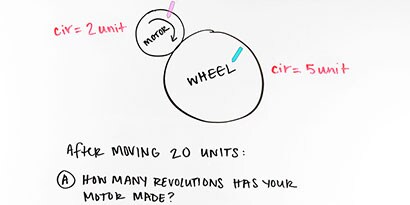 cir = 2 unit
MOTOR
WHEEL
cir = 5 unit
AFTER MOVING 20 UNITS:
A HOW MANY REVOLUTIONS HAS YOUR
MOTOR MADE?